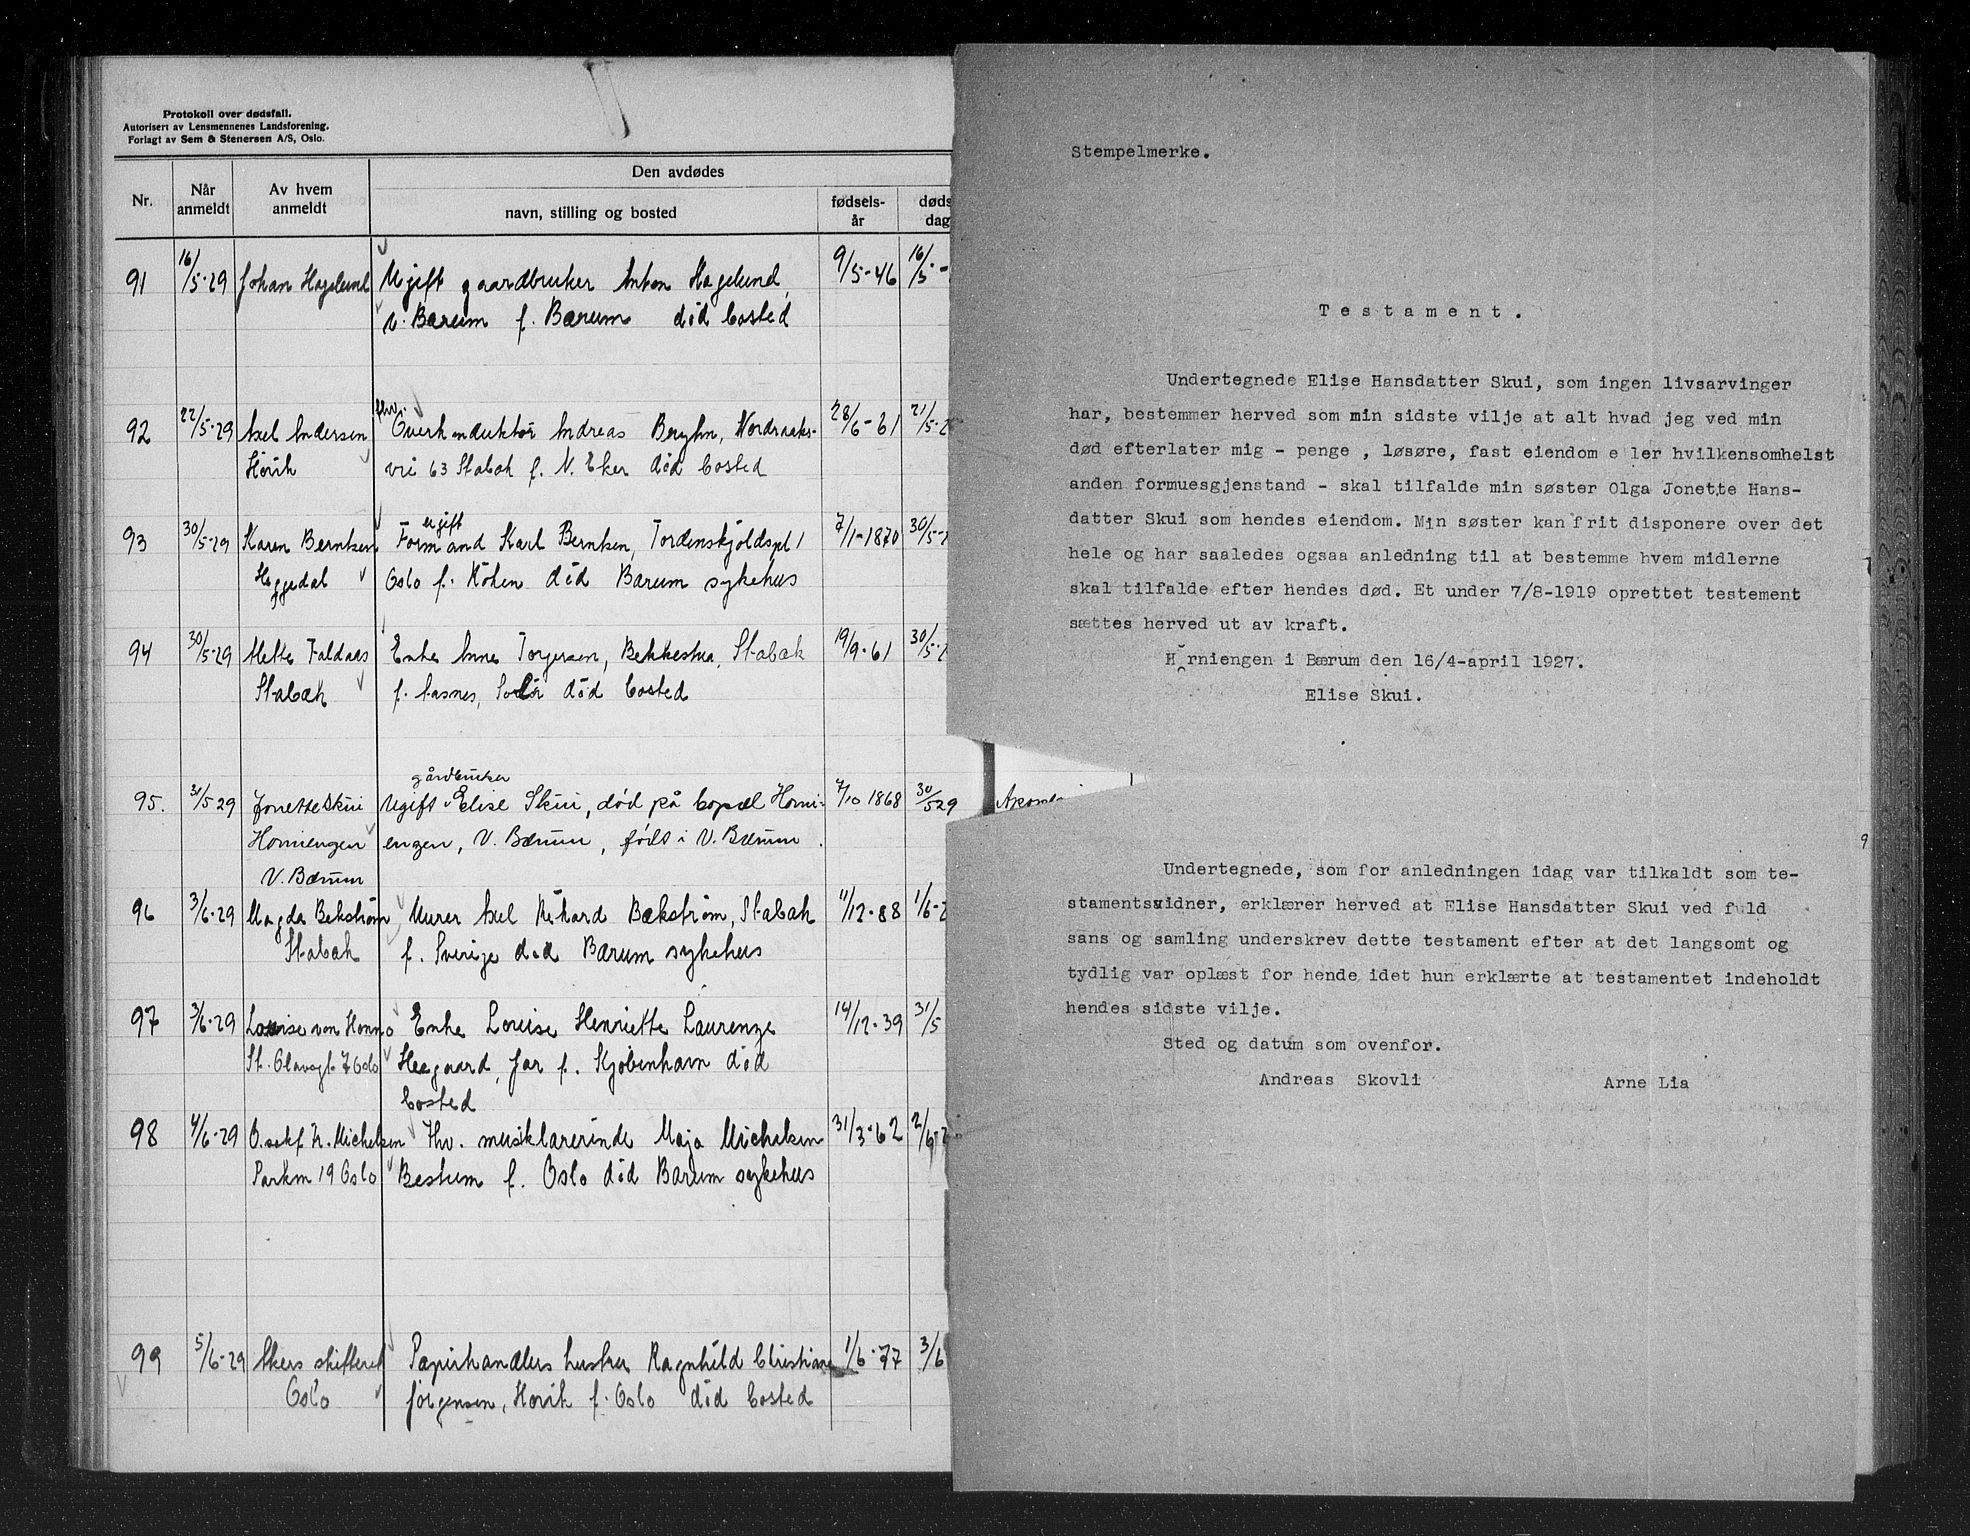 Protokoll over dødsfall.
Autorisert av Lensmennenes Landsforening.
Forlagt av Sem & Stenersen A/S, Oslo.
Nr.
Når anmeldt
Av hvem anmeldt
Den avdødes
navn, stilling og bosted
fødsels-
år
døds
dag
91 16/5-29 Johan Hagelund Ugift gaardbruker Anton Hagelund, 9/5-46 16/5-
V. Bærum f. Bærum död bosted
92 22/5-29 Axel Andersen fhv. Overkonduktör Andreas Berghn, Nordraaks- 28/6-61 21/5-2
Hövik vei 63 Stabæk f. N. Eker död bosted
93 30/5-29 Karen Berntsen Formand Karl Berntsen, Tordenskjoldspl 1 7/1-1870 30/5-2
ergift
Heggedal Oslo f. Röken död Bærum sykehus
94 30/5-29 Mette Faldaas Enke Anne Torgersen, Bekkestua, Stabæk 19/9-61 30/5-2
Stabæk f. Aasnes, Solör död bosted
gårdbruker
95. 31/5 29 Jonette Skui Ugift Elise Skui, död på bopæl Horni- 7/10 1868 30/5 29
Horniengen engen, V. Bærum, födt i V. Bærum.
V. Bærum
96 3/6-29 Magda Bekström Murer Axel Rikard Bækström, Stabæk 11/12-88 1/6-2
Stabæk f. Sverige död Bærum sykehus
97 3/6-29 Louise von Hanno Enke Louise Henriette Laurenze 14/12-39 31/5
St. Olavsgt. 7 Oslo Heegaard, Jar f. Kjöbenhavn död
bosted
98 4/6-29 O.sakf. H. Michelsen Fhv. musiklærerinde Maja Michelsen 31/3-62 2/6-2
Parkvn 19 Oslo Bestum f. Oslo död Bærum sykehus
99 5/6-29 Akers skifteret Papirhandlers hustru Ragnhild Christiane 1/6-77 3/6
Oslo Jörgensen, Hövik f. Oslo död bosted
Stempelmerke.
Testament.
Undertegnede Elise Hansdatter Skui, som ingen livsarvinger
har, bestemmer herved som min sidste vilje at alt hvad jeg ved min
død efterlater mig - penge , løsøre, fast eiendom e ler hvilkensomhelst
anden formuesgjenstand - skal tilfalde min søster Olga Jonette Hans-
datter Skui som hendes eiendom. Min søster kan frit disponere over det
hele og har saaledes ogsaa anledning til at bestemme hvem midlerne
skal tilfalde efter hendes død. Et under 7/8-1919 oprettet testement
sættes herved ut av kraft.
Horniengen i Bærum den 16/4-april 1927.
Elise Skui.
Undertegnede, som for anledningen idag var tilkaldt som te-
stamentsvidner, erklærer herved at Elise Hansdatter Skui ved fuld
sans og samling underskrev dette testament efter at det langsomt og
tydlig var oplæst for hende idet hun erklærte at testamentet indeholdt
hendes sidste vilje.
Sted og datum som ovenfor.
Andreas Skovli Arne Lia